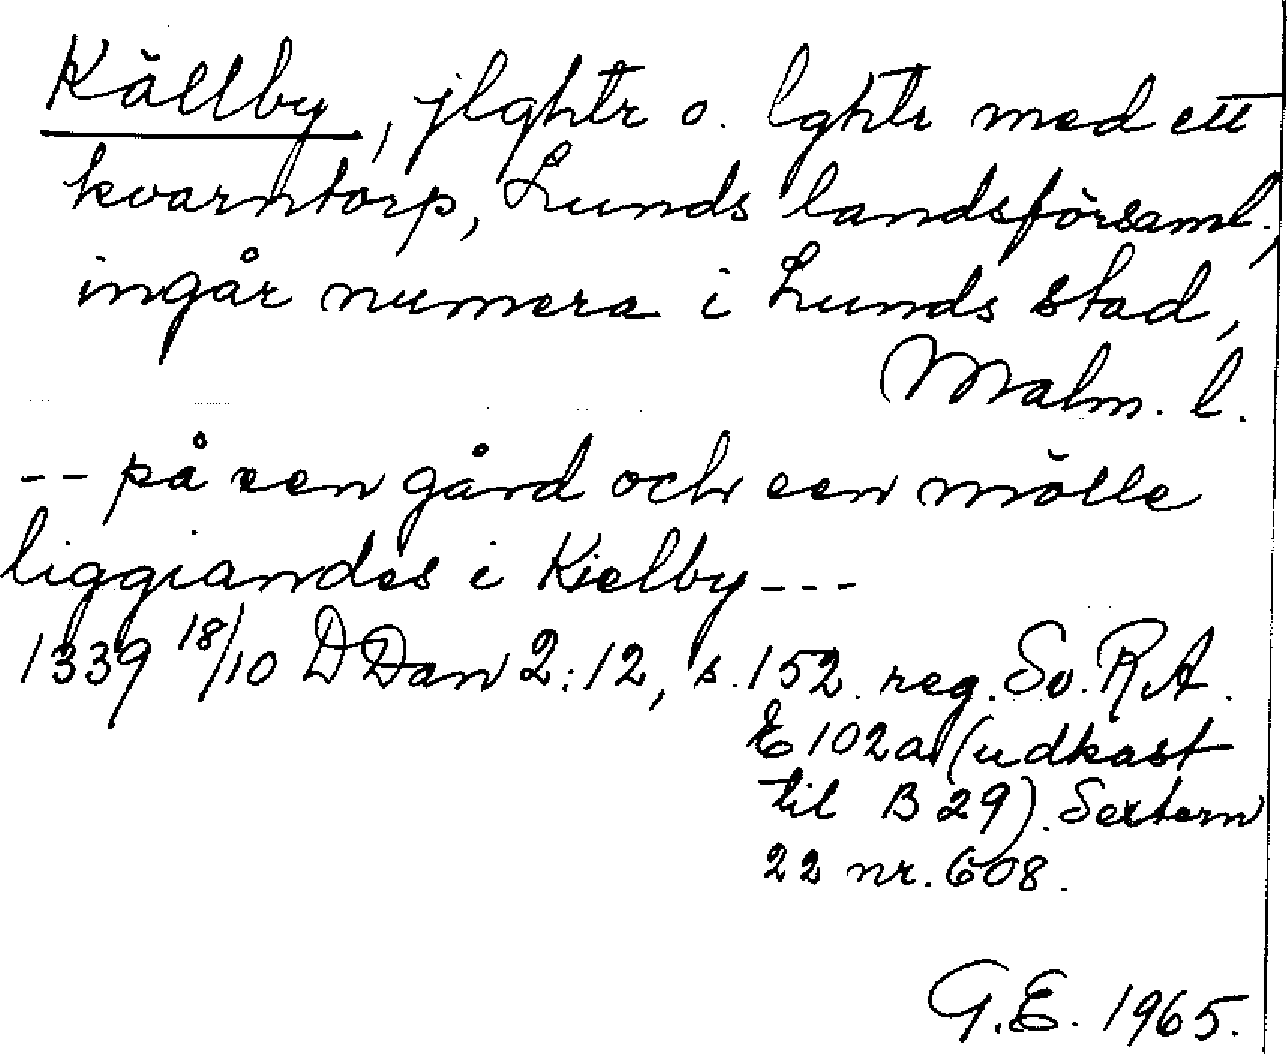 Källby, jlghtr o. lghtr med ett
kvarntorp, Lunds landsförsaml.,
ingår numera i Lunds stad,
Malm. l.
-- på een gård och een mölle
liggiandes i Kielby ---
1339 18/10 DDan 2:12, s. 152. reg. Sv. R.A.
E 102a (udkast
til B 29). Sextern
22 nr. 608.
G.E. 1965.